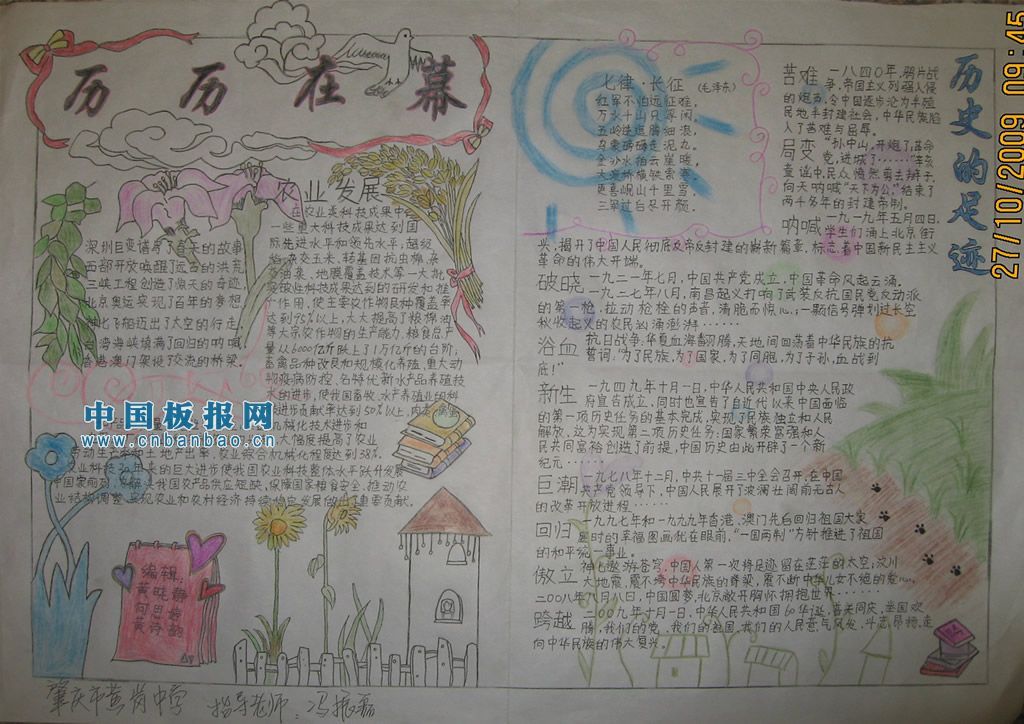 历历在幕
农业发展
在农业类科技成果中
一些重大科技成果达到国
际先进水平和领先水平,超级
杂交玉米,转基因抗虫棉,杂
交油菜、地膜覆盖技术等一大批
突破性科技成果达到的研发和推
广作用,使主要农作物良种覆盖率
达到95%以上,大大提高了粮棉油
等大宗农作物的生产能力,粮食总产
量从6000亿斤跃上了1万亿斤的台阶;
畜禽品种改良和规模化养殖,重大动
物疫病防控,名特优新水产品养殖技
术的进步,使我国畜牧、水产养殖业的科
技进步贡献率达到50%以上,
机械化技术进步和
大幅度提高了农业
劳动生产率和土地产出率,农业综合机械化程达到38%.
农业科技30年来的巨大进步使我国农业科技整体水平跃升发展
中国家前列,缓解了我国农产品供应短缺,保障国家粮食安全,推动农
业结构调整,实现农业和农村经济持续稳定发展做出重要贡献.
深圳巨变谱写了春天的故事
西部开放唤醒了远古的洪荒
三峡工程创造了惊天的奇迹,
北京奥运实现了百年的梦想
神七飞船迈出了太空的行走,
台湾海峡填满了回归的呐喊,
香港澳门架设了交流的桥梁.
中国板报网
www.cnbanbao.cn
编辑:
肇庆市黄岗中学 指导老师:冯振磊
七律·长征 (毛泽东)
红军不怕远征难,
万水千山只等闲.
五岭逶迤腾细浪,
乌蒙磅礴走泥丸.
金沙水拍云崖暖,
大渡桥横铁索寒.
更喜岷山千里雪,
三军过后尽开颜.
历史的足迹
苦难 一八四〇年,鸦片战
争,帝国主义列强入侵
的炮声,令中国逐步沦为半殖
民地半封建社会,中华民族陷
入了苦难与屈辱.
局变 "孙中山,开炮了,革命
党,进城了……"辛亥
童谣中,民众愤然剪去辫子,
向天呐喊"天下为公,"结束了
两千多年的封建帝制.
呐喊 一九一九年五月四日,
学生们涌上北京街
头,揭开了中国人民彻底反帝反封建的崭新篇章,标志着中国新民主主义
革命的伟大开端.
破晓 一九二一年七月,中国共产党成立,中国革命风起云涌.
一九二七年八月,南昌起义打响了武装反抗国民党反动派
的第一枪,拉动枪栓的声音,清脆而惊心;一颗信号弹划过长空
秋收起义的农民汹涌澎湃……
浴血 抗日战争,华夏血海翻腾,天地间回荡着中华民族的抗
誓词,"为了民族,为了国家,为了同胞,为了子孙,血战到
底!"
新生 一九四九年十月一日,中华人民共和国中央人民政
府宣告成立,同时也宣告了自近代以来中国面临
的第一项历史任务的基本完成,实现了民族独立和人民
解放,这为实现第二项历史任务:国家繁荣富强和人
民共同富裕创造了前提,中国历史由此开辟了一个新
纪元……
巨潮 一九七八年十二月,中共十一届三中全会召开,在中国
共产党领导下,中国人民展开了波澜壮阔前无古人
的改革开放进程……
回归 一九九七年和一九九九年香港、澳门先后回归祖国大家
庭时的幸福图画犹在眼前,"一国两制"方针推进了祖国
的和平统一事业.
傲立 神七遨游苍穹,中国人第一次将足迹留在茫茫的太空;汶川
大地震,震不垮中华民族的脊梁,震不断中华儿女不绝的
二〇〇八年八月八日,中国圆梦,北京敞开胸怀拥抱世界……
跨越 二〇〇九年十月一日,中华人民共和国60华诞,普天同庆,举国欢
腾,我们的党,我们的祖国,我们的人民意气风发,斗志昂扬,走
向中华民族的伟大复兴.
27/10/2009 09:45